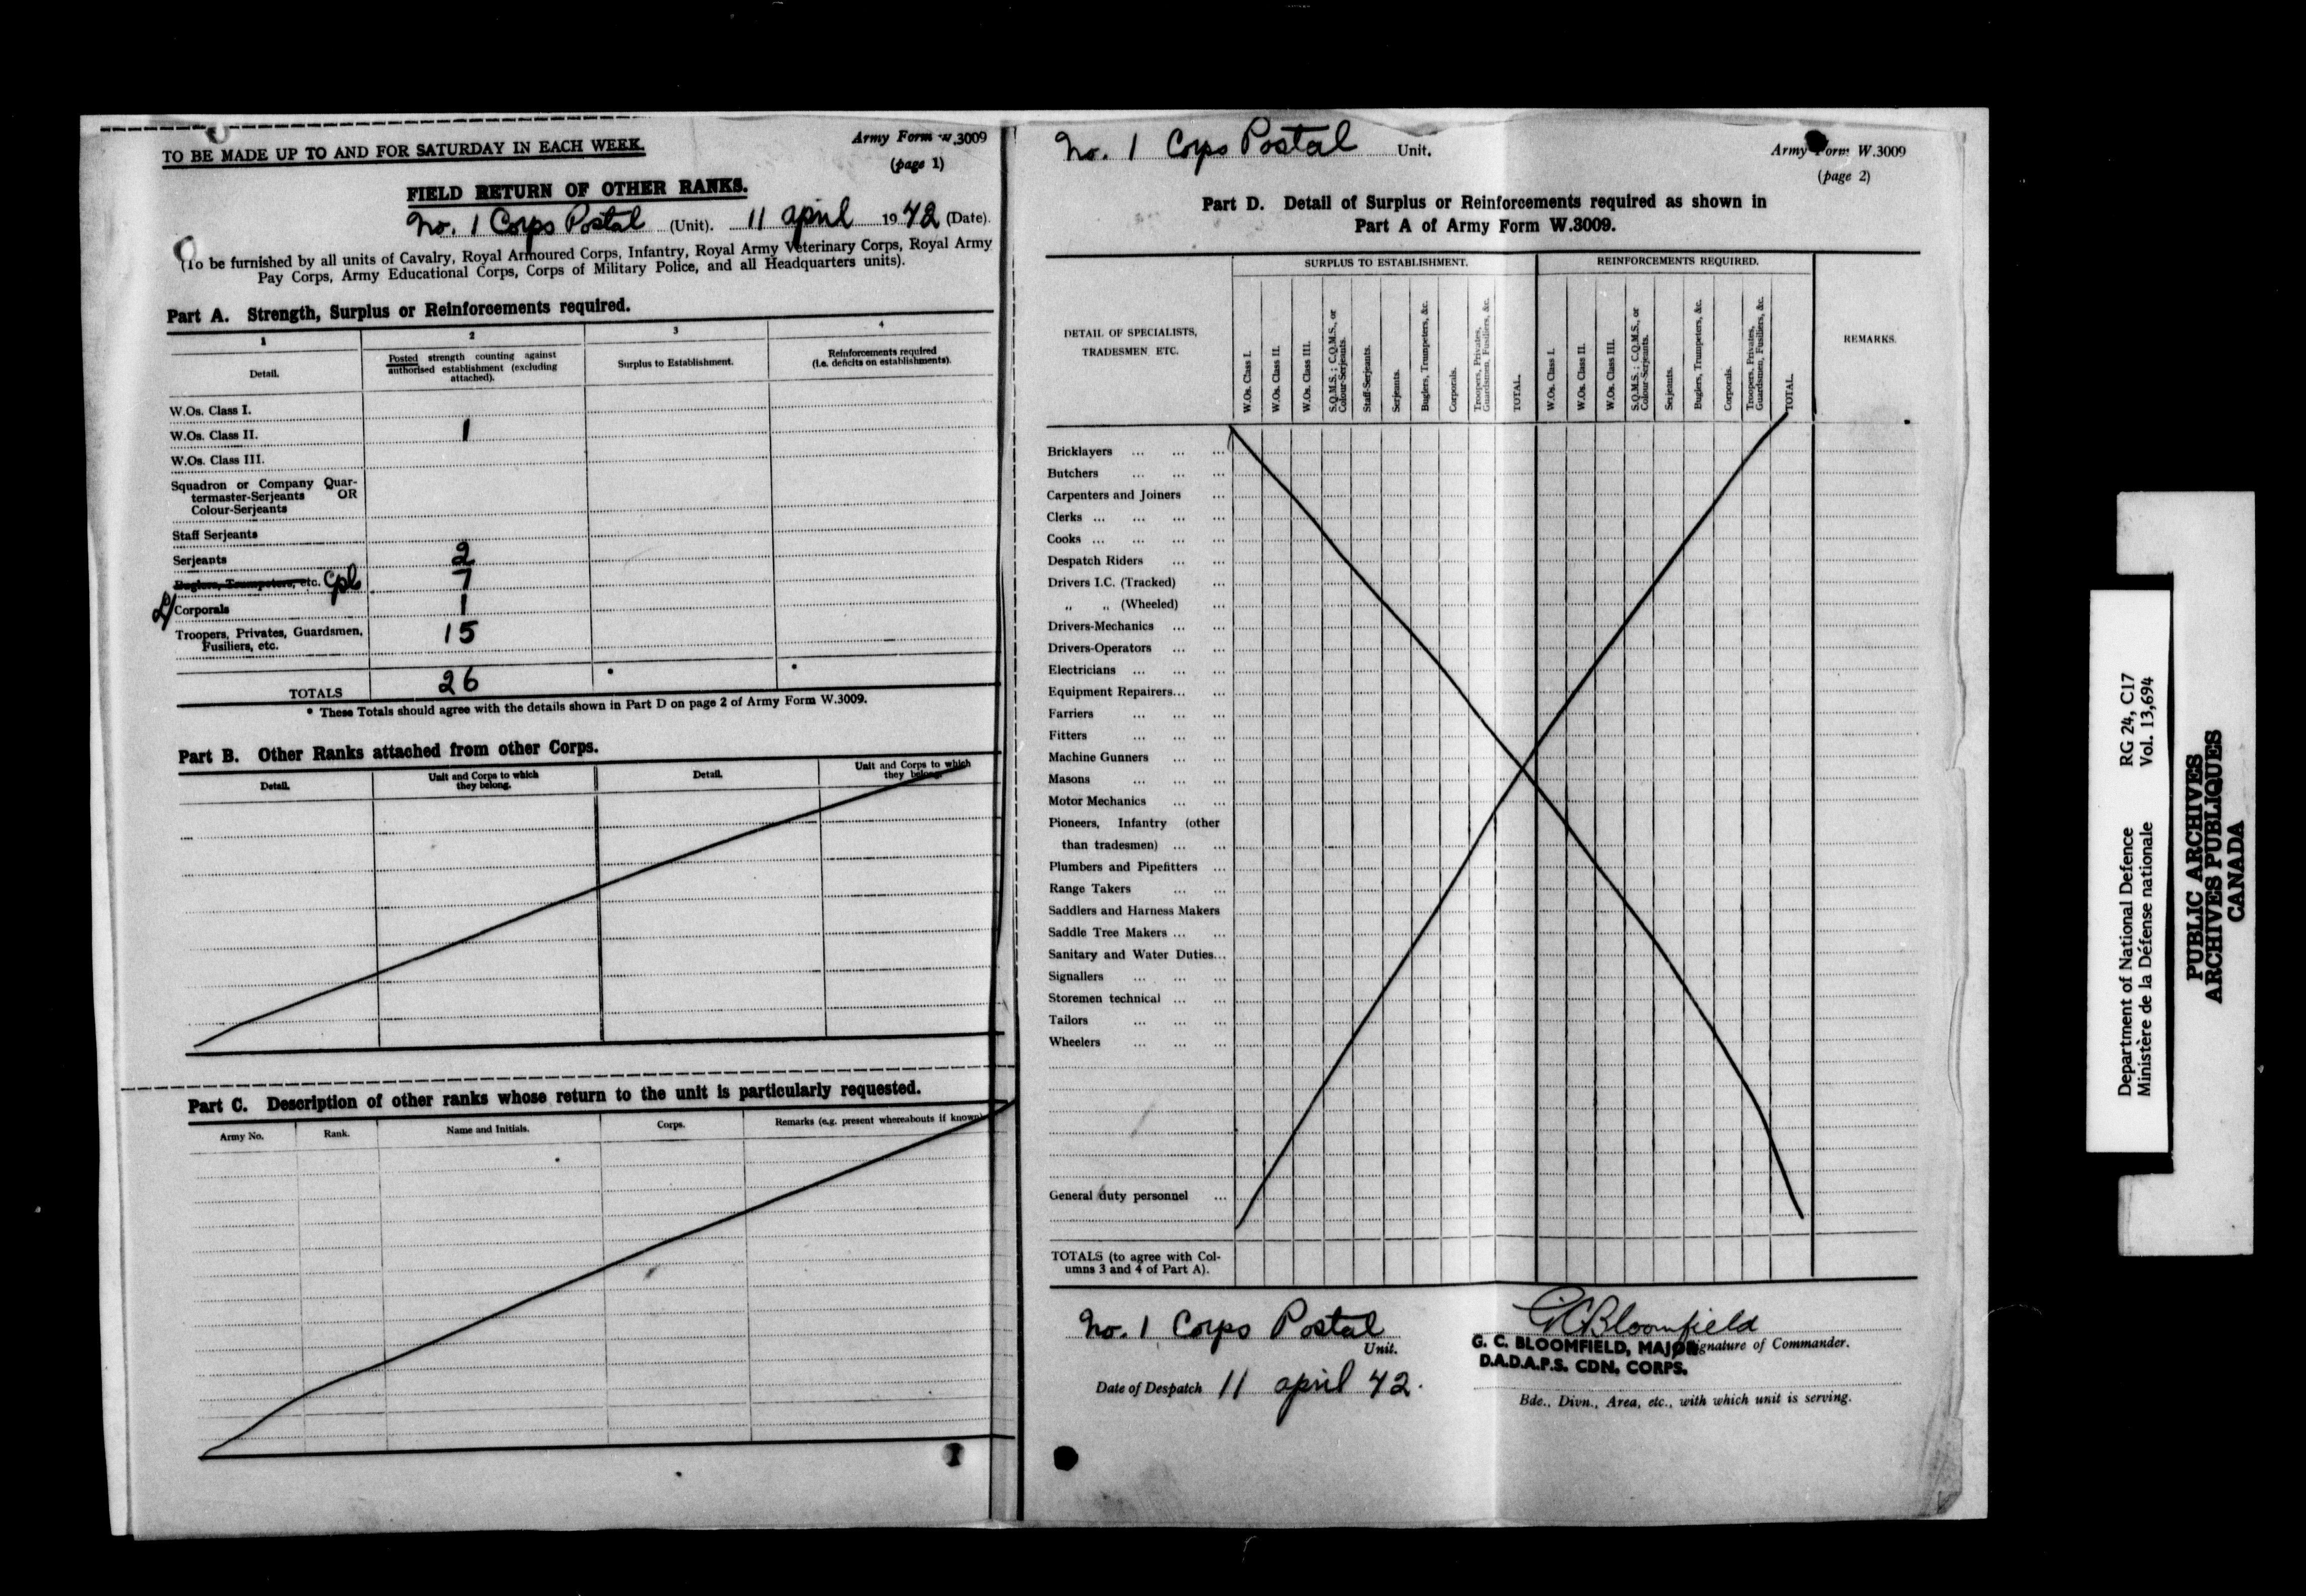 TO BE MADE UP TO AND FOR SATURDAY IN EACH WEEK.
Army Form W.3009
(page 1)
FIELD RETURN OF OTHER RANKS.
No. 1 Corps Postal (Unit). 11 april 1942 (Date).
(To be furnished by all units of Cavalry, Royal Armoured Corps, Infantry, Royal Army Veterinary Corps, Royal Army
Pay Corps, Army Educational Corps, Corps of Military Police, and all Headquarters units).
Part A. Strength, Surplus or Reinforcements required.
1 2 3 4
Detail.
Posted strength counting against
authorised establishment (excluding
attached).
Surplus to Establishment.
Reinforcements required
(i.e. deficits on establishments).
W.Os. Class I.
W.Os. Class II. 1
W.Os. Class III.
Squadron or Company Quar-
termaster-Serjeants OR
Colour-Serjeants
Staff Serjeants
Serjeants 2
Buglers, Trumpeters, etc. Cpl 7
L/Corporals 1
Troopers, Privates, Guardsmen, 15
Fusiliers, etc.
TOTALS 26 * *
* These Totals should agree with the details shown in Part D on page 2 of Army Form W.3009.
Part B. Other Ranks attached from other Corps.
Detail.
Unit and Corps to which
they belong.
Detail.
Unit and Corps to which
they belong.
Part C. Description of other ranks whose return to the unit is particularly requested.
Army No. Rank. Name and Initials. Corps. Remarks (e.g. present whereabouts if known)
No. 1 Corps Postal Unit.
Army Form W.3009
(page 2)
Part D. Detail of Surplus or Reinforcements required as shown in
Part A of Army Form W.3009.
DETAIL OF SPECIALISTS,
TRADESMEN ETC.
SURPLUS TO ESTABLISHMENT.
W.Os. Class I.
W.Os. Class II.
W.Os. Class III.
S.Q.M.S.; C.Q.M.S., or
Colour-Serjeants.
Staff-Serjeants.
Serjeants.
Buglers, Trumpeters, &c.
Corporals.
Troopers, Privates,
Guardsmen, Fusiliers, &c.
TOTAL.
REINFORCEMENTS REQUIRED.
W.Os. Class I.
W.Os. Class II.
W.Os. Class III.
S.Q.M.S.; C.Q.M.S., or
Colour-Serjeants.
Serjeants.
Buglers, Trumpeters, &c.
Corporals.
Troopers, Privates,
Guardsmen, Fusiliers, &c.
TOTAL.
REMARKS.
Bricklayers ... ... ...
Butchers ... ... ...
Carpenters and Joiners ...
Clerks ... ... ... ...
Cooks ... ... ... ...
Despatch Riders ... ...
Drivers I.C. (Tracked) ...
„ „ (Wheeled) ...
Drivers-Mechanics ... ...
Drivers-Operators ... ...
Electricians ... ... ...
Equipment Repairers... ...
Farriers ... ... ...
Fitters ... ... ...
Machine Gunners ... ...
Masons ... ... ...
Motor Mechanics ... ...
Pioneers, Infantry (other
than tradesmen) ... ...
Plumbers and Pipefitters ...
Range Takers ... ...
Saddlers and Harness Makers
Saddle Tree Makers ... ...
Sanitary and Water Duties...
Signallers ... ... ...
Storemen technical ... ...
Tailors ... ... ...
Wheelers ... ... ...
General duty personnel ...
TOTALS (to agree with Col-
umns 3 and 4 of Part A).
No. 1 Corps Postal
Unit.
Date of Despatch 11 april 42.
GCBloomfield
G. C. BLOOMFIELD, MAJOR Signature of Commander.
D.A.D.A.P.S. CDN. CORPS.
Bde., Divn., Area, etc., with which unit is serving.
Department of National Defence RG 24, C17
Ministère de la Défense nationale Vol. 13,694
PUBLIC ARCHIVES
ARCHIVES PUBLIQUES
CANADA